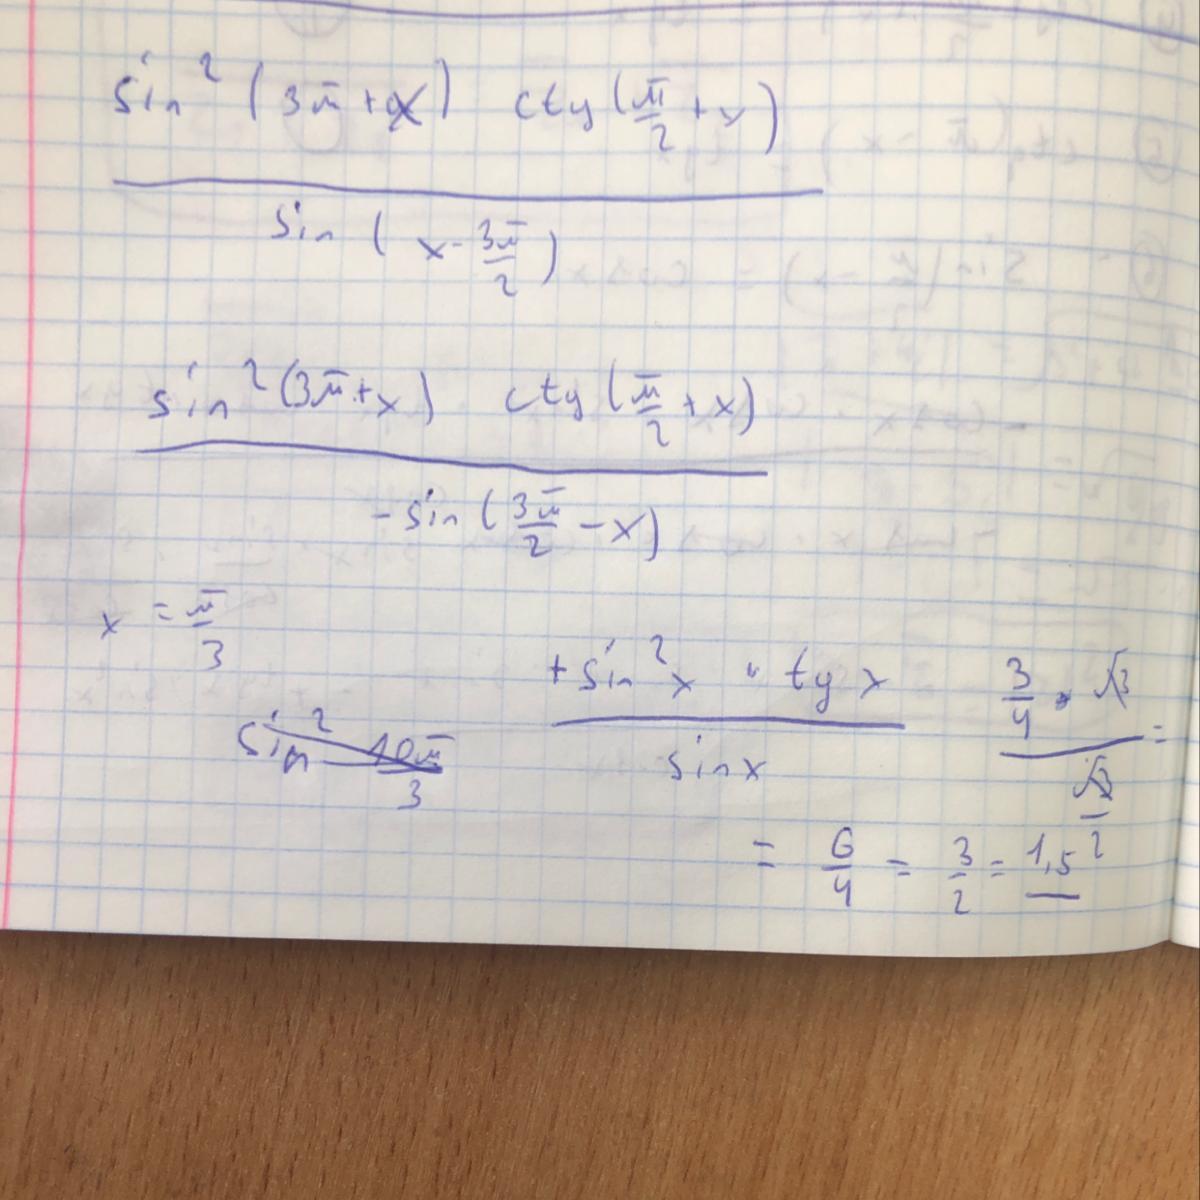 sin² (3π + x) ctg (π/2 + x)
sin (x - 3π/2)
sin² (3π + x) ctg (π/2 + x)
-sin (3π/2 - x)
x = π/3
sin² 10π/3
+ sin² x · tg x
sin x
3/4 · √3
√3/2 =
= 6/4 = 3/2 = 1,5